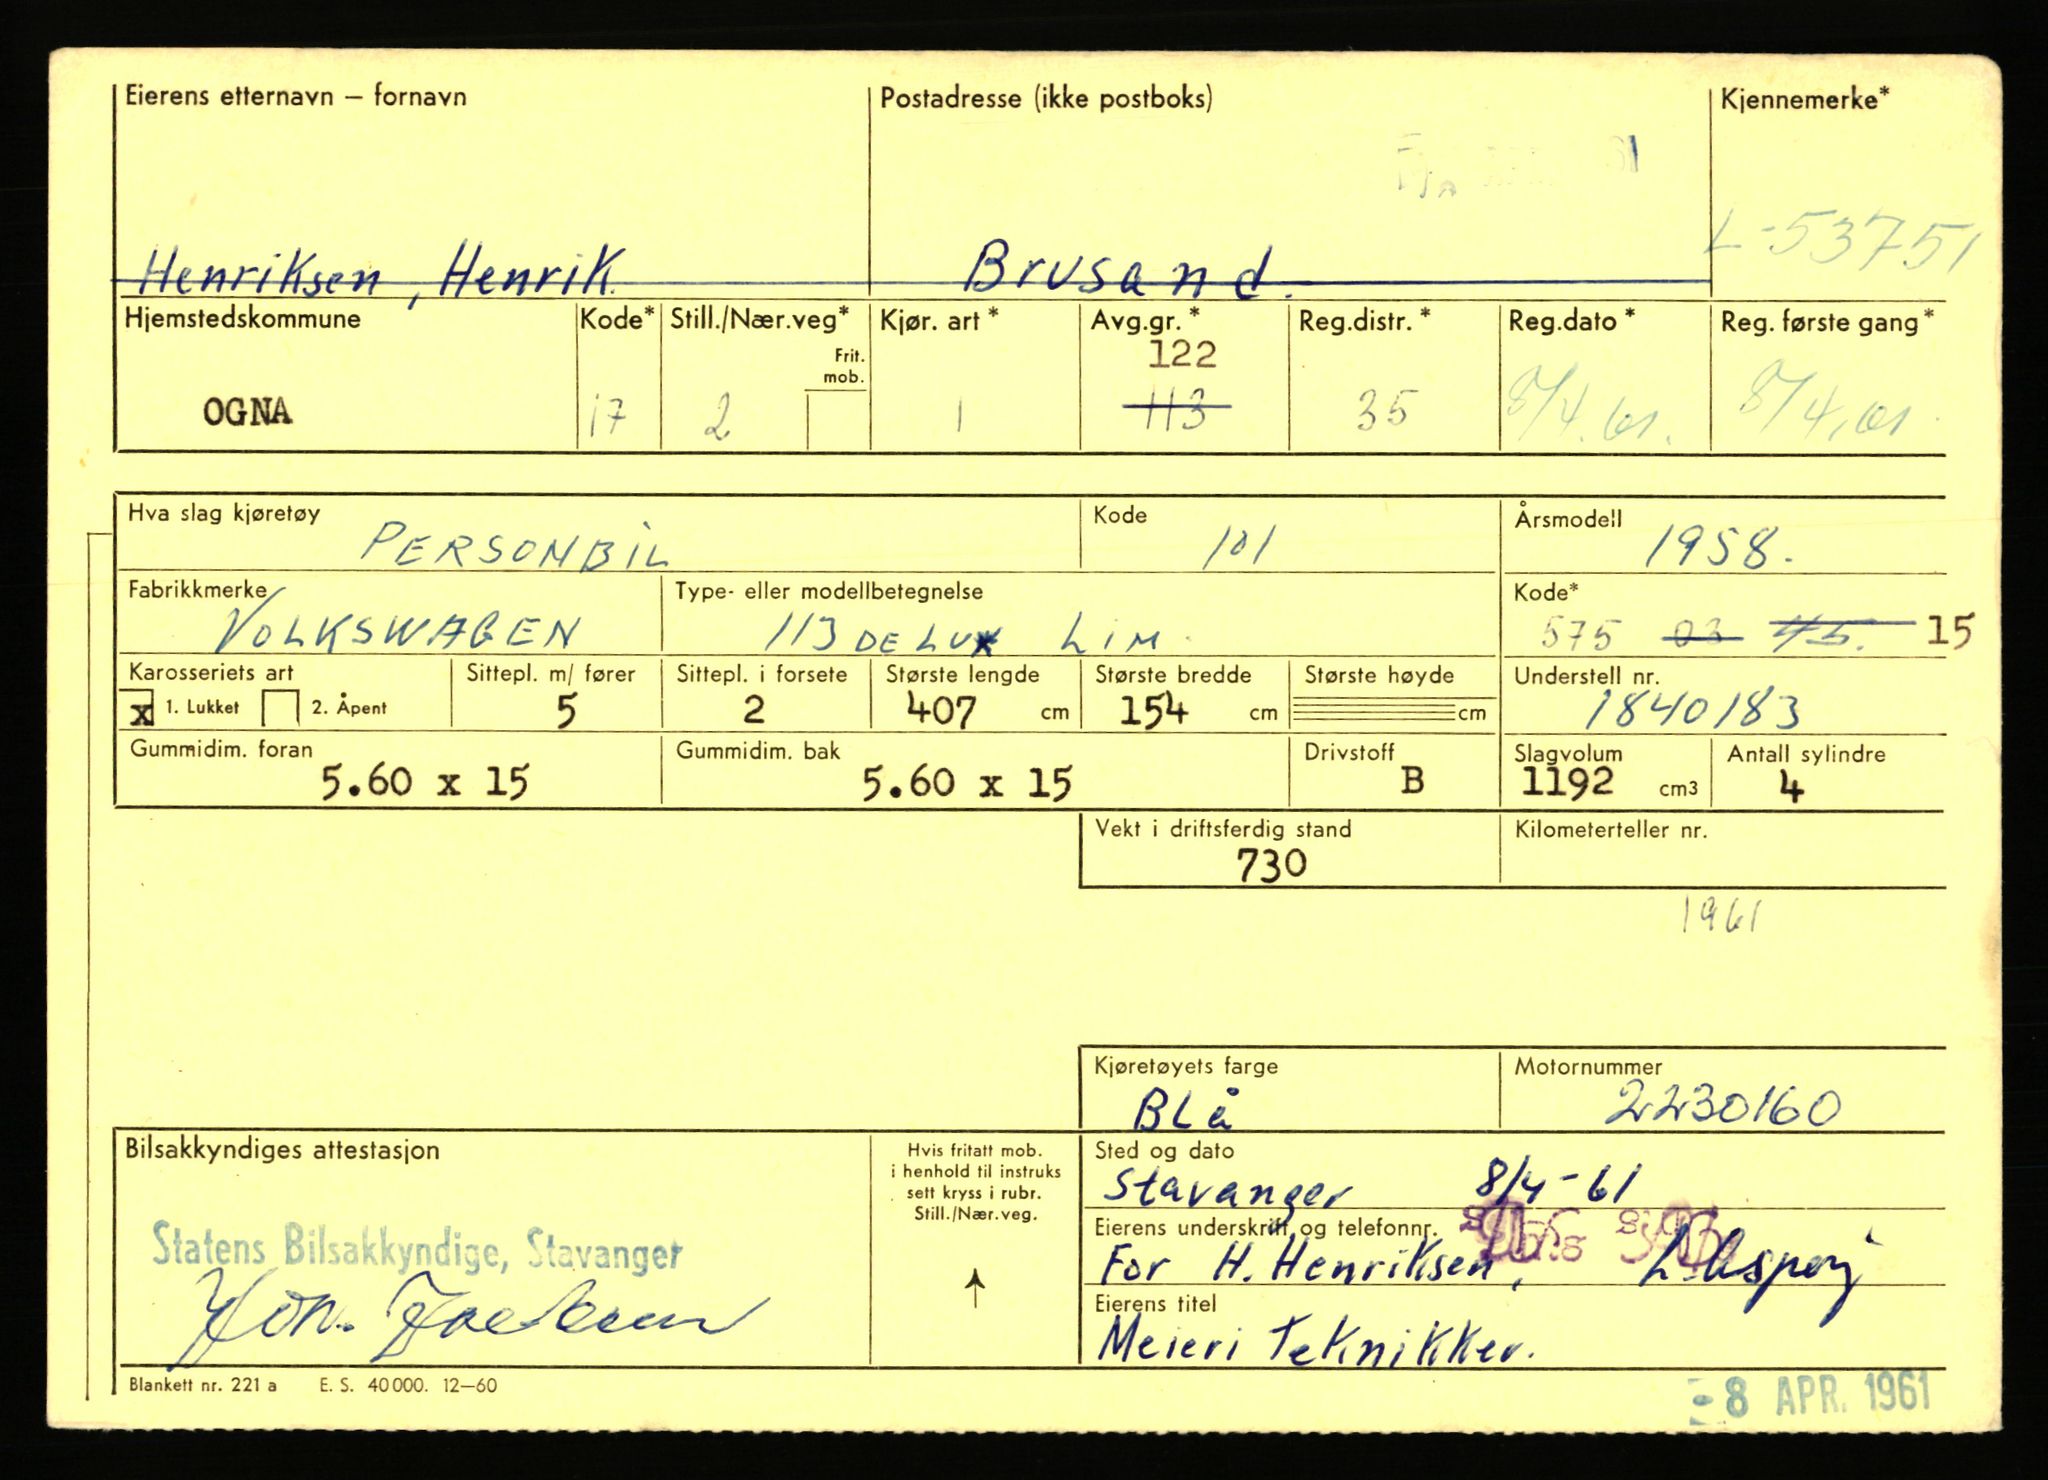 Eierens etternavn – fornavn Postadresse (ikke postboks) Kjennemerke*
61
L-53751
Henriksen, Henrik. Brusand.
Hjemstedskommune Kode* Still./Nær.veg* Kjør. art* Avg.gr.* Reg.distr.* Reg.dato* Reg. første gang*
Frit. mob. 122
OGNA 17 2 1 113 35 8/4.61. 8/4.61.
Hva slag kjøretøy Kode Årsmodell
PERSONBIL 101 1958.
Fabrikkmerke Type- eller modellbetegnelse Kode*
VOLKSWAGEN 113 DE LUX LIM. 575 03 45. 15
Karosseriets art Sittepl. m/ fører Sittepl. i forsete Største lengde Største bredde Største høyde Understell nr.
x 1. Lukket 2. Åpent 5 2 407 cm 154 cm cm 1840183
Gummidim. foran Gummidim. bak Drivstoff Slagvolum Antall sylindre
5.60 x 15 5.60 x 15 B 1192 cm3 4
Vekt i driftsferdig stand Kilometerteller nr.
730
1961
Kjøretøyets farge Motornummer
BLå 2230160
Bilsakkyndiges attestasjon Hvis fritatt mob. Sted og dato
i henhold til instruks
sett kryss i rubr. Stavanger 8/4-61
Still./Nær.veg.
Eierens underskrift og telefonnr.
Statens Bilsakkyndige, Stavanger For H. Henriksen,
Eierens titel
Meieri Teknikker.
Blankett nr. 221 a E. S. 40 000. 12–60
8 APR. 1961